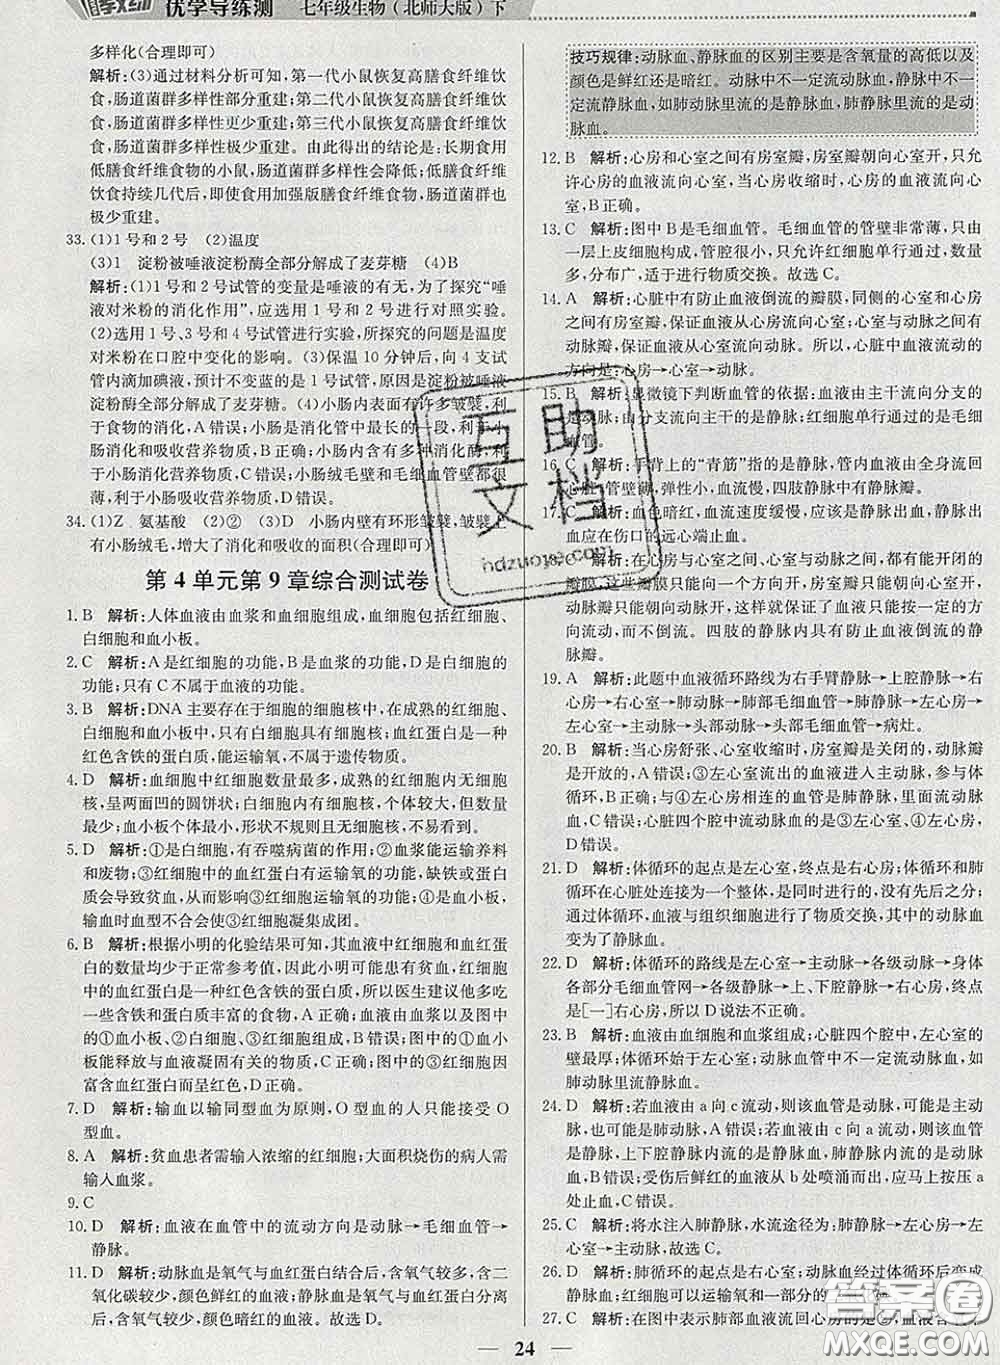 优学导练测 七年级生物（北师大版）下
多样化(合理即可)
解析:(3)通过材料分析可知，第一代小鼠恢复高膳食纤维饮
食，肠道菌群多样性部分重建；第二代小鼠恢复高膳食纤维饮
食，肠道菌群多样性更少重建；第三代小鼠恢复高膳食纤维饮
食，肠道菌群多样性极少重建。由此得出的结论是：长期食用
低膳食纤维食物的小鼠，肠道菌群多样性会降低；低膳食纤维
饮食持续几代后，即使食用加强版膳食纤维食物，肠道菌群也
极少重建。
33. (1)1号和2号 (2)温度
(3)1 淀粉被唾液淀粉酶全部分解成了麦芽糖 (4)B
解析:(1)1号和2号试管的变量是唾液的有无，为了探究“唾
液对米粉的消化作用”，应选用1号和2号进行对照实验。
(2)选用1号、3号和4号试管进行实验，所探究的问题是温度
对米粉在口腔中变化的影响。(3)保温10分钟后，向4支试
管内滴加碘液，预计不变蓝的是1号试管，原因是淀粉被唾液
淀粉酶全部分解成了麦芽糖。(4)小肠内表面有许多皱襞，利
于食物的消化，A错误；小肠是消化管中最长的一段，利于小
肠消化营养物质，B正确；小肠内有多种消化液和消化酶，有
利于小肠消化营养物质，C错误；小肠绒毛壁和毛细血管壁都很
薄，利于小肠吸收营养物质，D错误。
34. (1)Z 氨基酸 (2)② (3)D 小肠内壁有环形皱襞，皱襞上
有小肠绒毛，增大了消化和吸收的面积(合理即可)
第4单元第9章综合测试卷
1. B 解析:人体血液由血浆和血细胞组成，血细胞包括红细胞、
白细胞和血小板。
2. C 解析:A是红细胞的功能，B是血浆的功能，D是白细胞的
功能；只有C不属于血液的功能。
3. B 解析:DNA主要存在于细胞的细胞核中，在成熟的红细胞、
白细胞和血小板中，只有白细胞具有细胞核；血红蛋白是一种
红色含铁的蛋白质，能运输氧，不属于遗传物质。
4. D 解析:血细胞中红细胞数量最多，成熟的红细胞无细胞
核，呈两面凹的圆饼状；白细胞有细胞核，个体较大，但数量
最少；血小板个体最小，形状不规则且无细胞核，不易看到。
5. D 解析:①是白细胞，有吞噬病菌的作用；②血浆能运输养料
和废物；③红细胞中的血红蛋白有运输氧的功能，缺铁或蛋白
质会引起贫血，影响③红细胞运输氧的功能；④是血小板，
输血时血型不合会使③红细胞凝集成团。
6. B 解析:根据小明的化验结果可知，其血液中红细胞和血红蛋
白的数量均少于正常参考值，因此小明可能患有贫血，又因为
血红蛋白是一种含铁的蛋白质，所以医生建议他多吃
一些含铁和蛋白质丰富的食物，A正确；流动的血液以及图中
的①血小板、②白细胞、③红细胞组成血液，B错误；①血小
板能释放与血液凝固有关的物质，C正确；图中的③红细胞因
富含血红蛋白而呈红色，D正确。
7. D 解析:输血以输同型血为原则，O型血的人只能接受O
型血。
8. A 解析:贫血患者需输入浓缩的红细胞，大面积烧伤的病人需
输入血浆。
9. C
10. D 解析:血液在血管中的流动方向是动脉→毛细血管→
静脉。
11. D 解析:动脉血是氧气与血红蛋白结合后，含氧气较多，含二
氧化碳较少，颜色鲜红的血；静脉血是氧气与血红蛋白分离后，
含氧气较少，颜色暗红的血。故选D。
技巧规律:动脉血、静脉血的区别主要是含氧量的高低以及
颜色是鲜红还是暗红。动脉中不一定流动脉血，静脉中不一
定流静脉血，如肺动脉里流的是静脉血，肺静脉里流的是动
脉血。
12. B 解析:心房和心室之间有房室瓣，房室瓣朝向心室开，只允
许心房的血液流向心室，当心房收缩时，心房的血液流向心
室，B正确。
13. C 解析:图中B是毛细血管。毛细血管的管壁非常薄，只由
一层上皮细胞构成，管腔很小，只允许红细胞单行通过，数量
多，分布广，适于进行物质交换。故选C。
14. A 解析:心脏中有防止血液倒流的瓣膜，同侧的心室和心房
之间有房室瓣，保证血液从心房流向心室，心室和动脉之间有
动脉瓣，保证血液从心室流向动脉。所以，心脏中血液流动的
方向是：心房→心室→动脉。
15. B 解析:显微镜下判断血管的依据：血液由主干流向分支的
是动脉；由分支流向主干的是静脉；红细胞单行通过的是毛细
血管。
16. C 解析:手背上的“青筋”指的是静脉，管内血液由全身流回
心房，管壁薄，弹性小，血流速度慢，四肢静脉中有静脉瓣。
17. C 解析:血色暗红，血流速度缓慢，应该是静脉出血，静脉出
血应在伤口的远心端止血。
解析:心房与心室之间、心室与动脉之间，都有能开闭的
瓣膜，这些瓣膜只能向一个方向开，这样就保证了血液只能
四肢的静脉内具有防止血液倒流的静
脉瓣。
19. A 解析:此题中血液循环路线为右手臂静脉→上腔静脉→右
心房→右心室→肺动脉→肺部毛细血管→肺静脉→左心房→
左心室→主动脉→头部动脉→头部毛细血管→病灶。
20. B 解析:当心房舒张、心室收缩时，房室瓣是关闭的，动脉瓣
是开放的，A错误；③左心室流出的血液进入主动脉，参与体
循环，B正确；与④左心房相连的血管是肺静脉，里面流动脉
血，C错误；心脏四个腔中流动脉血的是③左心室、④左心房，
D错误。
21. D 解析:体循环的起点是左心室，终点是右心房；体循环和肺
循环在心脏处连接为一个整体，是同时进行的，没有先后之分；
通过体循环，血液与组织细胞进行了物质交换，其中的动脉血
变为了静脉血。
22. D 解析:体循环的路线是左心室→主动脉→各级动脉→身体
各部分毛细血管网→各级静脉→上、下腔静脉→右心房，终点
是[一]右心房，所以D说法不正确。
23. B 解析:血液由血细胞和血浆组成；心脏四个腔中，左心室的
壁最厚；体循环始于左心室；动脉血管中不一定流动脉血，如
肺动脉里流静脉血。
24. D 解析:若血液由a向c流动，则该血管可能是主动脉，也可
能是肺动脉，A错误；若血液由c向a流动，则该血管可能是
上、下腔静脉，也可能是肺静脉，若是肺静脉则流的是动脉血，
B错误；受伤后鲜红的血液从b处喷涌而出，应马上按压a处
止血，C错误。
25. C 解析:将水注入肺静脉，水流途径为：肺静脉→左心房→左
心室→主动脉，故选C。
26. D 解析:肺循环的起点是右心室；动脉血经过体循环后变成
静脉血；
27. C 解析:在图中表示肺部血液流回心房的是②，血液含
24
互助文档
hdzuoye.com
答案圈
MXQE.COM